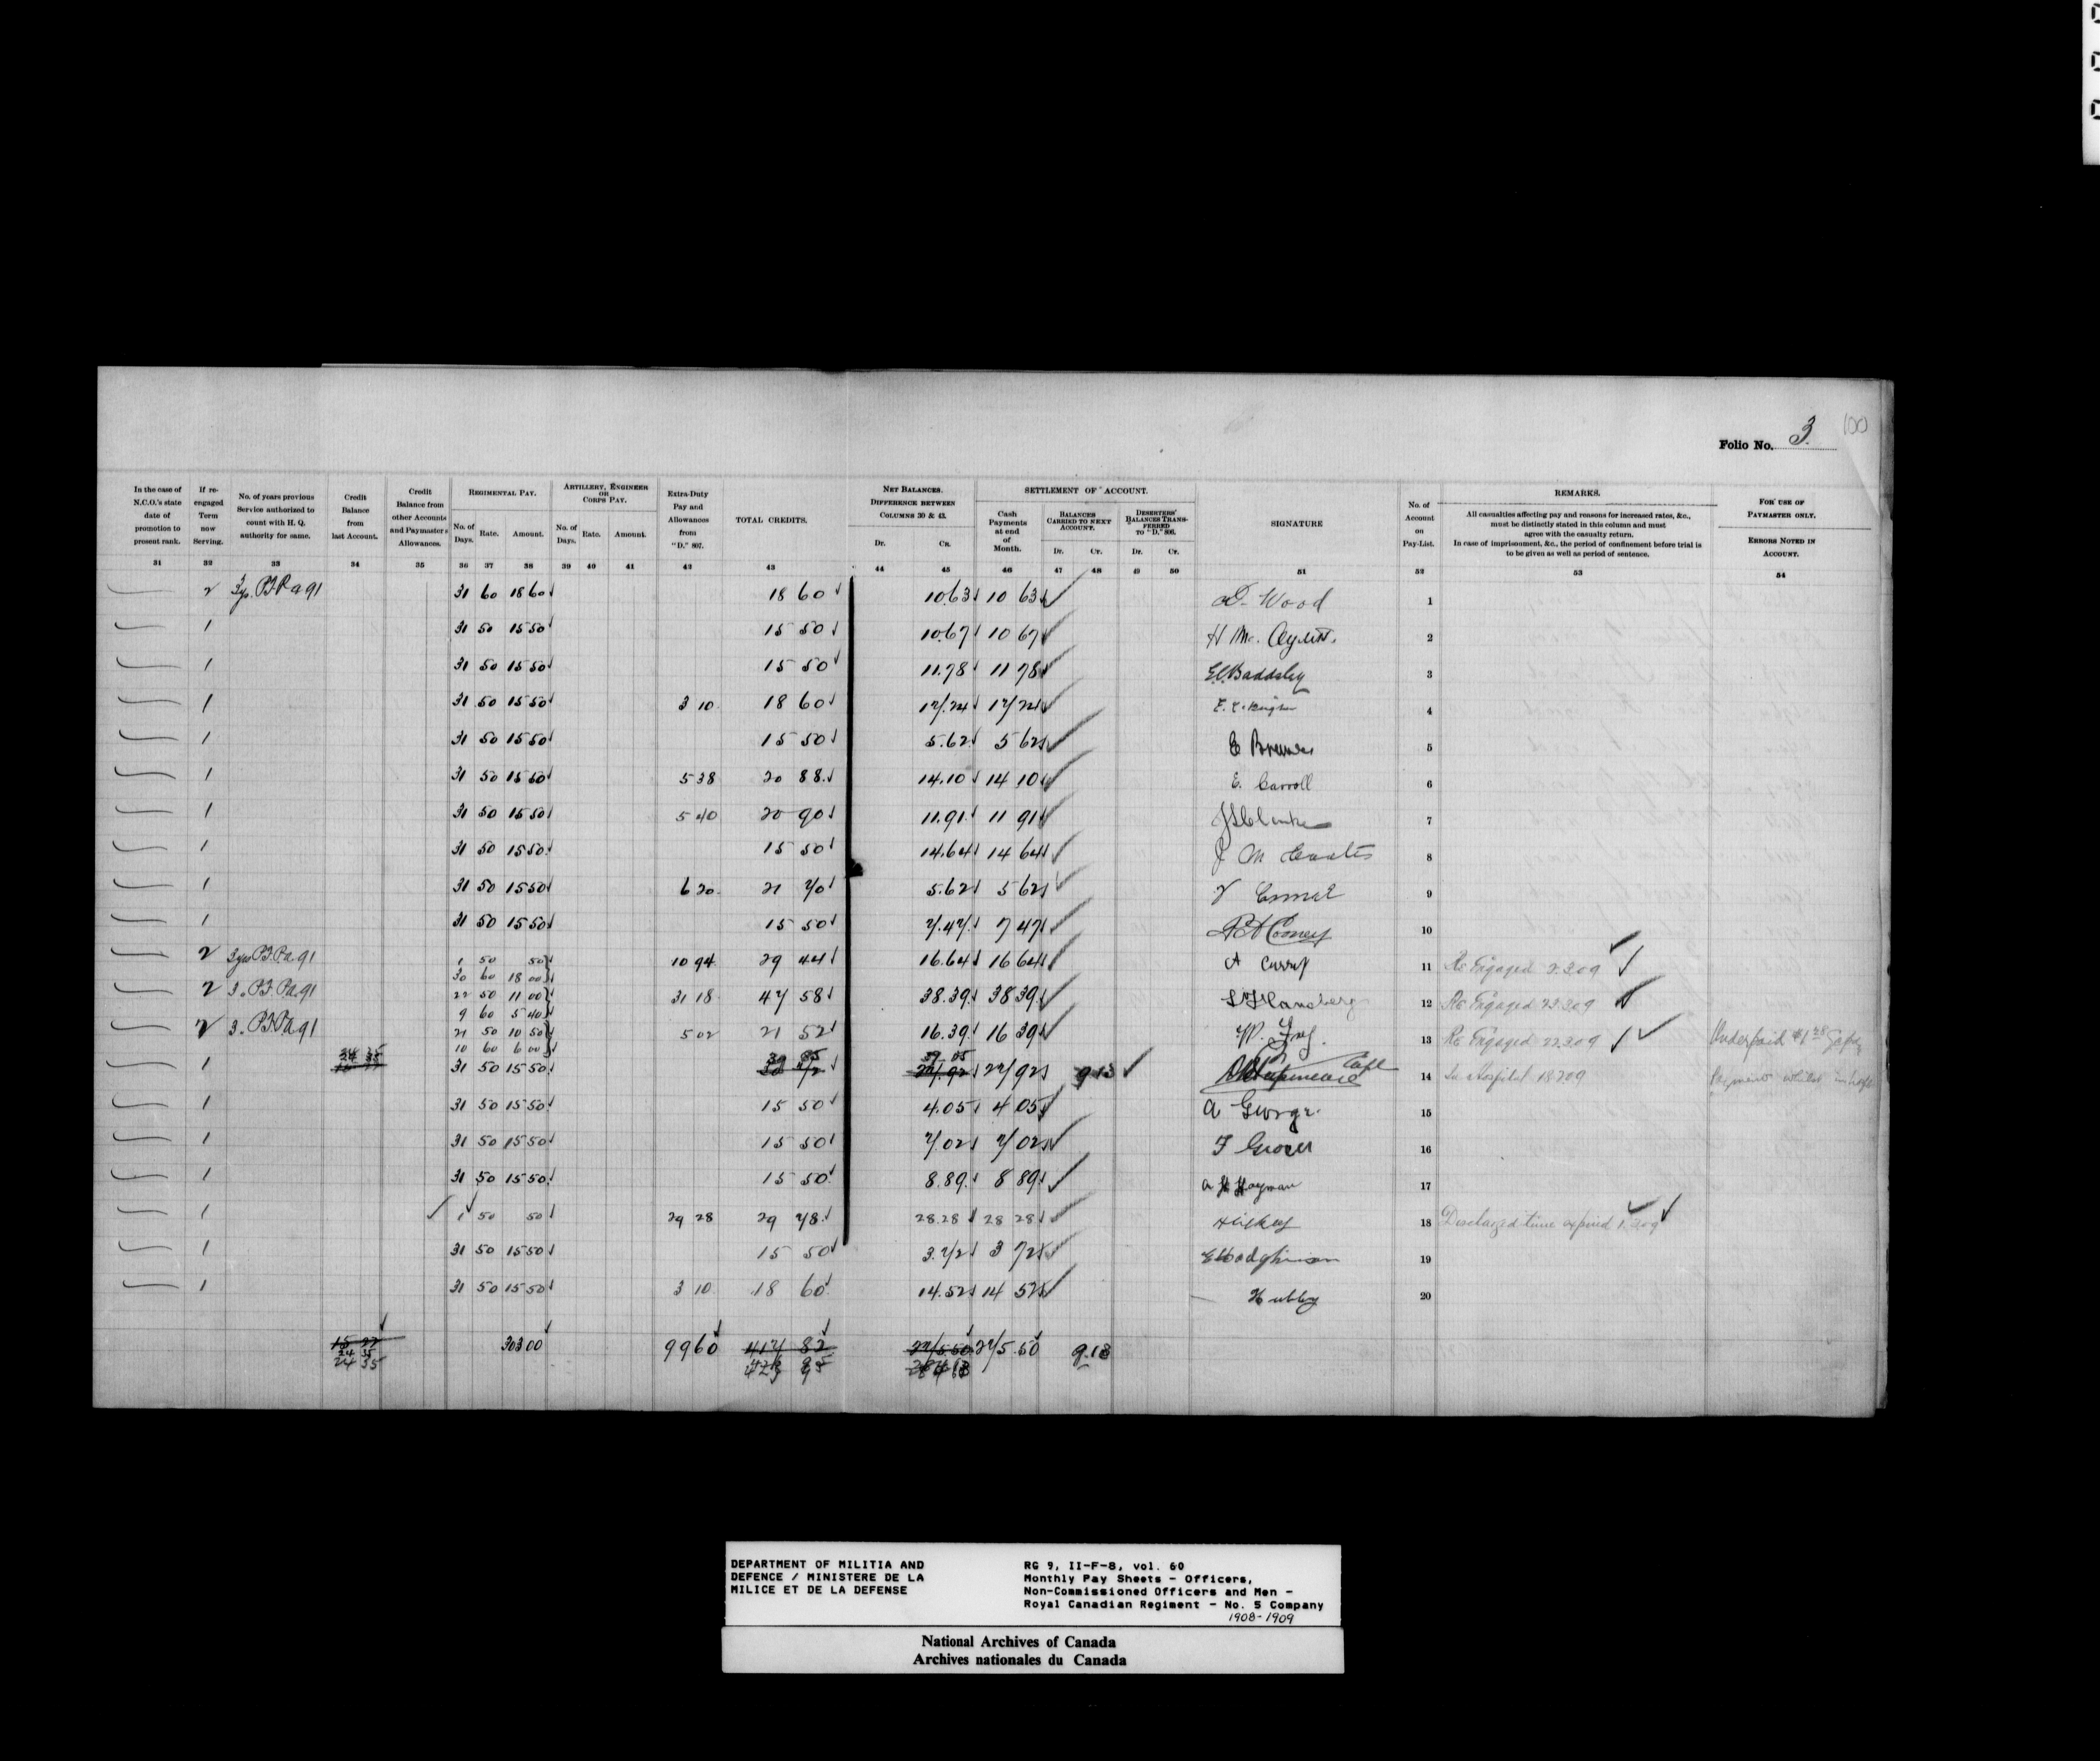 Folio No. 3. 100
In the case of N.C.O.'s state date of promotion to present rank.
If re-engaged Term now Serving.
No. of years previous Service authorized to count with H. Q. authority for same.
Credit Balance from last Account.
Credit Balance from other Accounts and Paymasters Allowances.
REGIMENTAL PAY.
No. of Days. Rate. Amount.
ARTILLERY, ENGINEER OR CORPS PAY.
No. of Days. Rate. Amount.
Extra-Duty Pay and Allowances from "D." 807.
TOTAL CREDITS.
NET BALANCES.
DIFFERENCE BETWEEN COLUMNS 30 & 43.
Dr. Cr.
SETTLEMENT OF ACCOUNT.
Cash Payments at end of Month.
BALANCES CARRIED TO NEXT ACCOUNT.
Dr. Cr.
DESERTERS' BALANCES TRANSFERRED TO "D." 806.
Dr. Cr.
SIGNATURE
No. of Account on Pay-List.
REMARKS.
All casualties affecting pay and reasons for increased rates, &c., must be distinctly stated in this column and must agree with the casualty return.
In case of imprisonment, &c., the period of confinement before trial is to be given as well as period of sentence.
FOR USE OF PAYMASTER ONLY.
ERRORS NOTED IN ACCOUNT.
31 32 33 34 35 36 37 38 39 40 41 42 43 44 45 46 47 48 49 50 51 52 53 54
2 3ys. P.F. Pa 91 31 60 18 60 18 60 10.63 10 63 D. Wood 1
1 31 50 15 50 15 50 10.67 10 67 H Mc. 2
1 31 50 15 50 15 50 11.78 11 78 Baddsley 3
1 31 50 15 50 3 10 18 60 17.24 17 24 4
1 31 50 15 50 15 50 5.62 5 62 5
1 31 50 15 50 5 38 20 88 14.10 14 10 E. Carroll 6
1 31 50 15 50 5 40 20 90 11.91 11 91 7
1 31 50 15 50 15 50 14.64 14 64 J M 8
1 31 50 15 50 6 20 21 70 5.62 5 62 9
1 31 50 15 50 15 50 7.47 7 47 Cooney 10
2 3ys P.F. Pa. 91 1 50 50 10 94 29 44 16.64 16 64 A Curry 11 Re Engaged 2.3.09
30 60 18 00
2 3. P.F. Pa. 91 22 50 11 00 31 18 47 58 38.39 38 39 12 Re Engaged 23.3.09
9 60 5 40
2 3. P.F. Pa 91 21 50 10 50 5 02 21 52 16.39 16 39 13 Re Engaged 22.3.09 Underpaid
10 60 6 00
1 24 35 31 50 15 50 27.92 27 92 9 13 Capt 14 In Hospital 18 2 09 Payment whilst in
1 31 50 15 50 15 50 4.05 4 05 A George 15
1 31 50 15 50 15 50 7.02 7 02 F Grover 16
1 31 50 15 50 15 50 8.89 8 89 A H Hayman 17
1 1 50 50 29 28 29 78 28.28 28 28 Hickey 18 Discharged time expired 1.3.09
1 31 50 15 50 15 50 3.72 3 72 19
1 31 50 15 50 3 10 18 60 14.52 14 52 Hubby 20
303 00 99 60 417 82 275.50 275.50 9.13
24 35
DEPARTMENT OF MILITIA AND
DEFENCE / MINISTERE DE LA
MILICE ET DE LA DEFENSE
RG 9, II-F-8, vol. 60
Monthly Pay Sheets - Officers,
Non-Commissioned Officers and Men -
Royal Canadian Regiment - No. 5 Company
1908-1909
National Archives of Canada
Archives nationales du Canada